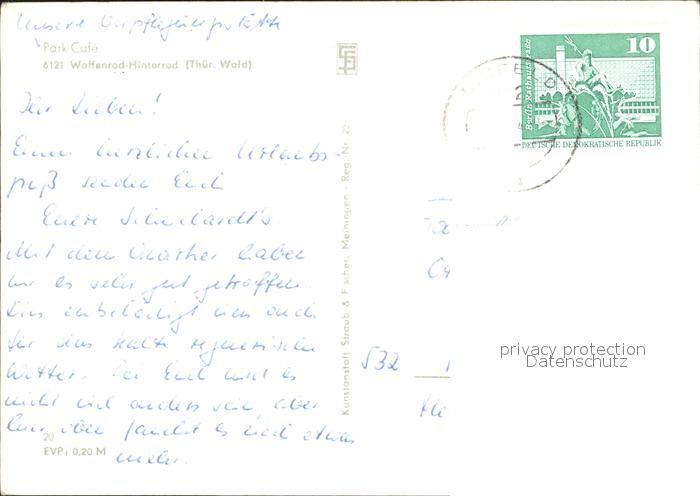 Unsere Verpflegungsstätte
Park Café
6121 Waffenrod-Hinterrod (Thür. Wald)
Ihr Lieben!
Einen herzlichen Urlaubs-
gruß senden Euch
Eure Schuchardt's.
Mit dem Quartier haben
wir es sehr gut getroffen.
Das entschädigt uns auch
für das kalte regnerische
Wetter. Bei Euch wird es
nicht viel anders sein, aber
hier oben faucht es noch etwas
mehr.
20
EVP: 0,20 M
Kunstanstalt Straub & Fischer, Meiningen - Reg. Nr. 22
10
Berlin Rathausstraße
DEUTSCHE DEMOKRATISCHE REPUBLIK
532
privacy protection
Datenschutz